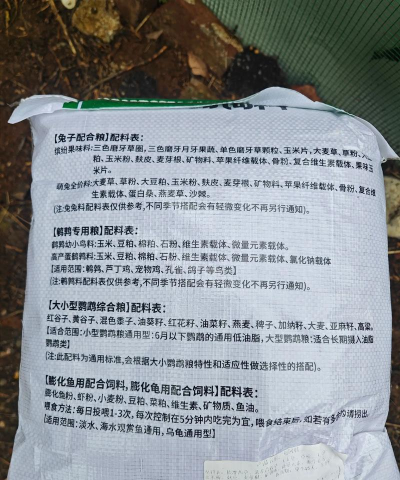 【兔子配合粮】配料表：
缤纷果味料：三色磨牙草圈，三色磨牙月牙果蔬、单色磨牙草颗粒、玉米片，大麦草，草粉，大豆
粕、玉米粉、麸皮、麦芽根、矿物料、苹果纤维载体、骨粉、复合维生素载体、果味玉
米片。
萌兔全价料：大麦草、草粉、大豆粕、玉米粉、麸皮、麦芽根、矿物料、苹果纤维载体、骨粉、复合维
生素载体、蛋白桑、燕麦草、沙棘。
(注：兔兔料配料表仅供参考，不同季节搭配会有轻微变化不再另行通知)。
【鹌鹑专用粮】配料表：
鹌鹑幼小鸟料：玉米、豆粕、棉粕、石粉、维生素载体、微量元素载体。
高产蛋鹌鹑料：玉米、豆粕、棉粕、石粉、维生素载体、微量元素载体、氯化钠载体
【适用范围：鹌鹑、芦丁鸡、宠物鸡、孔雀、鸽子等鸟类】
(注：鹌鹑料配料表仅供参考，不同季节搭配会有轻微变化不再另行通知)。
【大小型鹦鹉综合粮】配料表：
红谷子、黄谷子、混色黍子、油葵籽、红花籽、油菜籽、燕麦、稗子、加纳籽、大麦、亚麻籽、高粱。
【适合范围：小型鹦鹉通用型：6月以下鹦鹉的通用低油脂，大型鹦鹉粮：适合长期摄入油脂
鹦鹉类】
(注：此配料为通用标准，会根据大小鹦鹉粮特性和适应性做选择性的搭配)。
【膨化鱼用配合饲料，膨化龟用配合饲料】配料表：
膨化鱼粉、虾粉、小麦粉、豆粕、菜粕、维生素、矿物质、鱼油。
喂食方法：每日投喂1-3次，每次控制在5分钟内吃完为宜，喂食结束后，如若有多的请捞出。
【适用范围：淡水、海水观赏鱼通用，乌龟通用型】